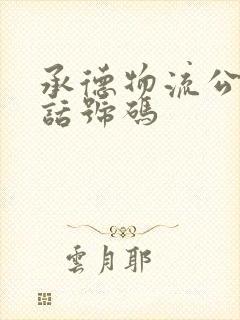 承德物流公
話號碼
雲月耶